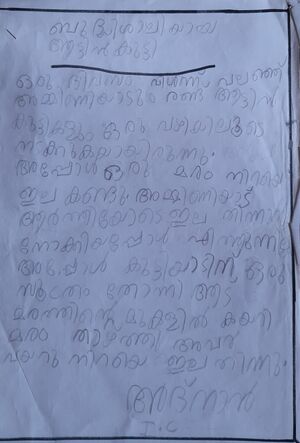 ബുദ്ധിശാലിയായ
ആട്ടിൻകുട്ടി
ഒരു ദിവസം വിശന്ന് വലഞ്ഞ്
അമ്മിണിയാടും രണ്ട് ആട്ടിൻ
കുട്ടികളും ഒരു വഴികിലൂടെ
നടക്കുകയായിരുന്നു.
അപ്പോൾ ഒരു മരം നിറയെ
ഇല കണ്ടു. അമ്മിണിയാട്
ആർത്തിയോടെ ഇല തിന്നാൻ
നോക്കിയപ്പോൾ എത്തുന്നില്ല
അപ്പോൾ കുട്ടിയാടിന് ഒരു
സൂത്രം തോന്നി ആട്
മരത്തിൻ്റെ മുകളിൽ കയറി
മരം താഴ്ത്തി അവർ
വയറു നിറയെ ഇല തിന്നു.
അദ്നാൻ
I.C